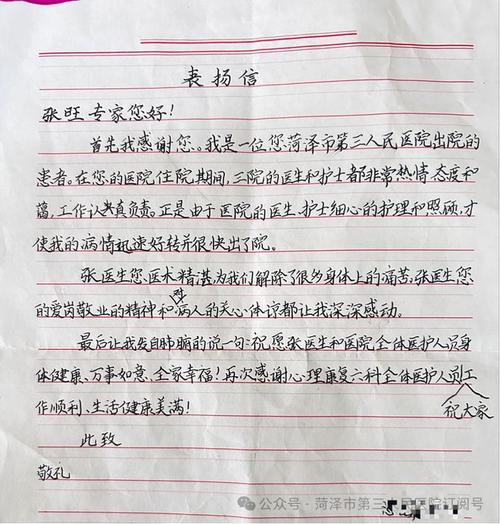 表扬信
张旺专家您好！
首先我感谢您。我是一位您菏泽市第三人民医院出院的
患者。在您的医院住院期间,三院的医生和护士都非常热情、态度和
蔼,工作认真负责。正是由于医院的医生、护士细心的护理和照顾,才
使我的病情迅速好转并很快出了院。
张医生您医术精湛为我们解除了很多身体上的痛苦,张医生您
的爱岗敬业的精神和对病人的关心体谅都让我深深感动。
最后让我发自肺腑的说一句:祝愿张医生和医院全体医护人员身
体健康、万事如意、全家幸福！再次感谢心理康复六科全体医护人员祝大家工
作顺利、生活健康美满！
此致
敬礼
公众号·菏泽市第三人民医院订阅号